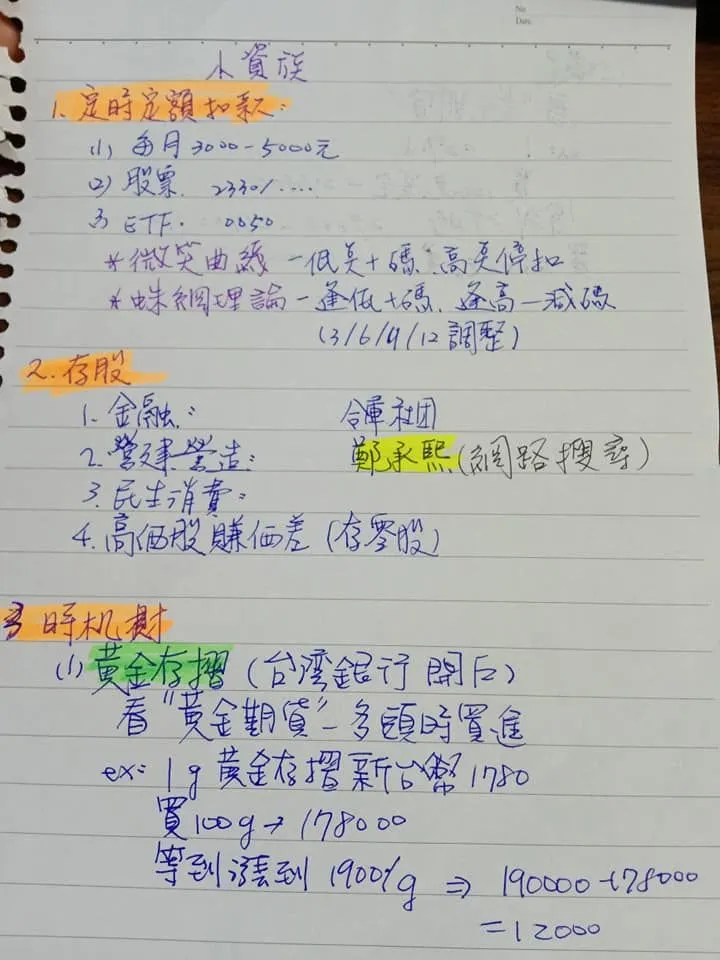 No
Date
小資族
1. 定時定額扣款:
(1) 每月3000-5000元
(2) 股票. 2330/....
3) ETF. 0050
*微笑曲線 - 低美+碼. 高美停扣
*蛛網理論 - 逢低+碼. 逢高-減碼
(3/6/9/12調整)
2. 存股
1. 金融: 合庫社团
2. 營建營造: 鄭承熙(網路搜尋)
3. 民生消費:
4. 高価股賺価差 (存零股)
3 時机財
(1) 黃金存摺 (台湾銀行開戶)
看"黃金期貨" - 多頭時買進
ex: 1g 黃金存摺新台幣1780
買100g → 178000
等到漲到 1900/g ⇒ 190000-178000
=12000